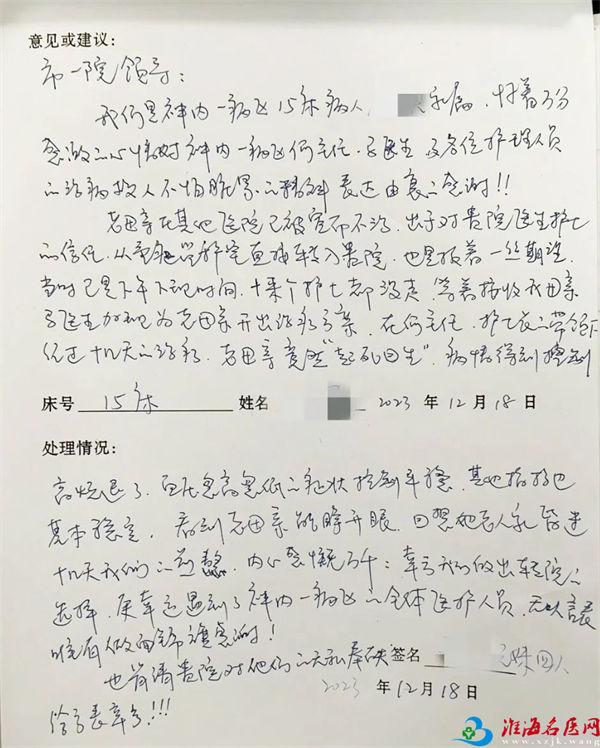 意见或建议：
市一院领导：
我们是神内一病区15床病人 家属，怀着万分
感激的心情对神内一病区何主任、医生及各位护理人员
的治病救人不怕脏累的精神表达由衷的感谢!!
老母亲在其他医院已被宣布不治，出于对贵院医生护士
的信任，从 直接转入贵院，也是报着一丝期望，
当时已是下午下班时间，十来个护士都没走，等着接收我母亲
医生加班为老母亲开出治疗方案，在何主任、护士长的带领下
经过十几天的治疗，老母亲竟然"起死回生"，病情得到控制
床号 15床 姓名 2023 年 12 月 18 日
处理情况：
高烧退了，血压忽高忽低的症状控制平稳，其他指标也
基本稳定，看到老母亲能睁开眼，回想她老人家
十几天我们的煎熬，内心感慨万千：幸亏我们做出转院的
选择，更幸运遇到了神内一病区的全体医护人员，无以言表
唯有做面锦旗感谢！
也肯请贵院对他们的无私奉献 签名 四人
2023 年 12 月 18 日
给予表彰!!!
淮海名医网
www.xzjk.wang